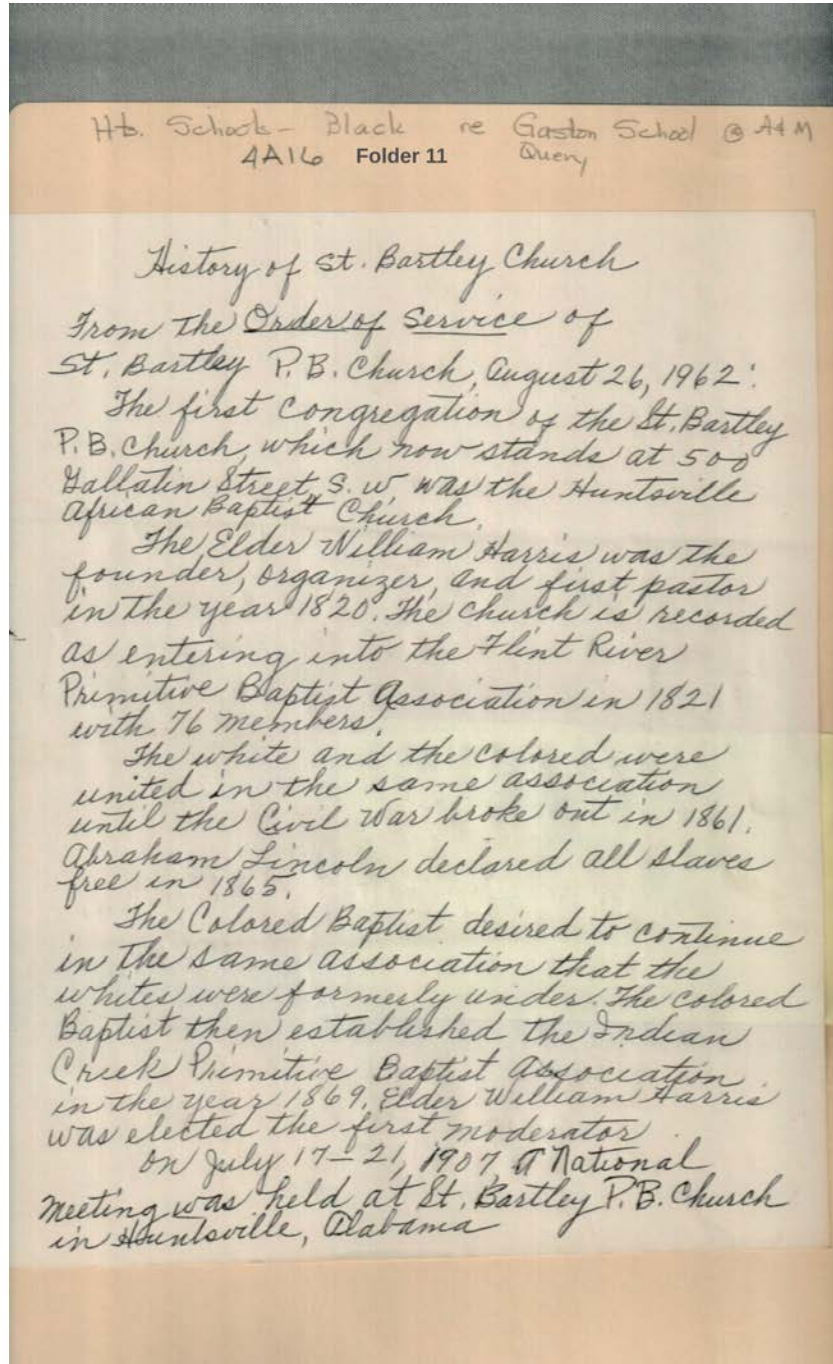 Hts. Schools - Black re Gaston School @ A&M
4A16 Folder 11 Query
History of St. Bartley Church
From the Order of Service of
St. Bartley P.B. Church, August 26, 1962:
The first congregation of the St. Bartley
P.B. Church, which now stands at 500
Gallatin Street, S.W. was the Huntsville
African Baptist Church.
The Elder William Harris was the
founder, organizer, and first pastor
in the year 1820. The church is recorded
as entering into the Flint River
Primitive Baptist Association in 1821
with 76 members.
The white and the colored were
united in the same association
until the Civil War broke out in 1861.
Abraham Lincoln declared all slaves
free in 1865.
The Colored Baptist desired to continue
in the same association that the
whites were formerly under. The colored
Baptist then established the Indian
Creek Primitive Baptist Association
in the year 1869. Elder William Harris
was elected the first moderator.
On July 17-21, 1907, a National
Meeting was held at St. Bartley P.B. Church
in Huntsville, Alabama